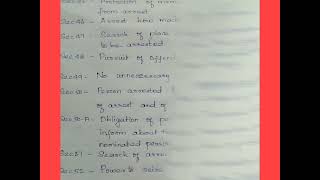 Protection of
from arrest
Sec 46 - Arrest how
Sec 47 - Search of place
to be arrested
Sec 48 - Pursuit of
Sec 49 - No unnecessary
Sec 50 - Person arrested
of arrest and of
Sec 50-A - Obligation of
inform about
nominated
Sec 51 - Search of
Sec 52 - Power to seize